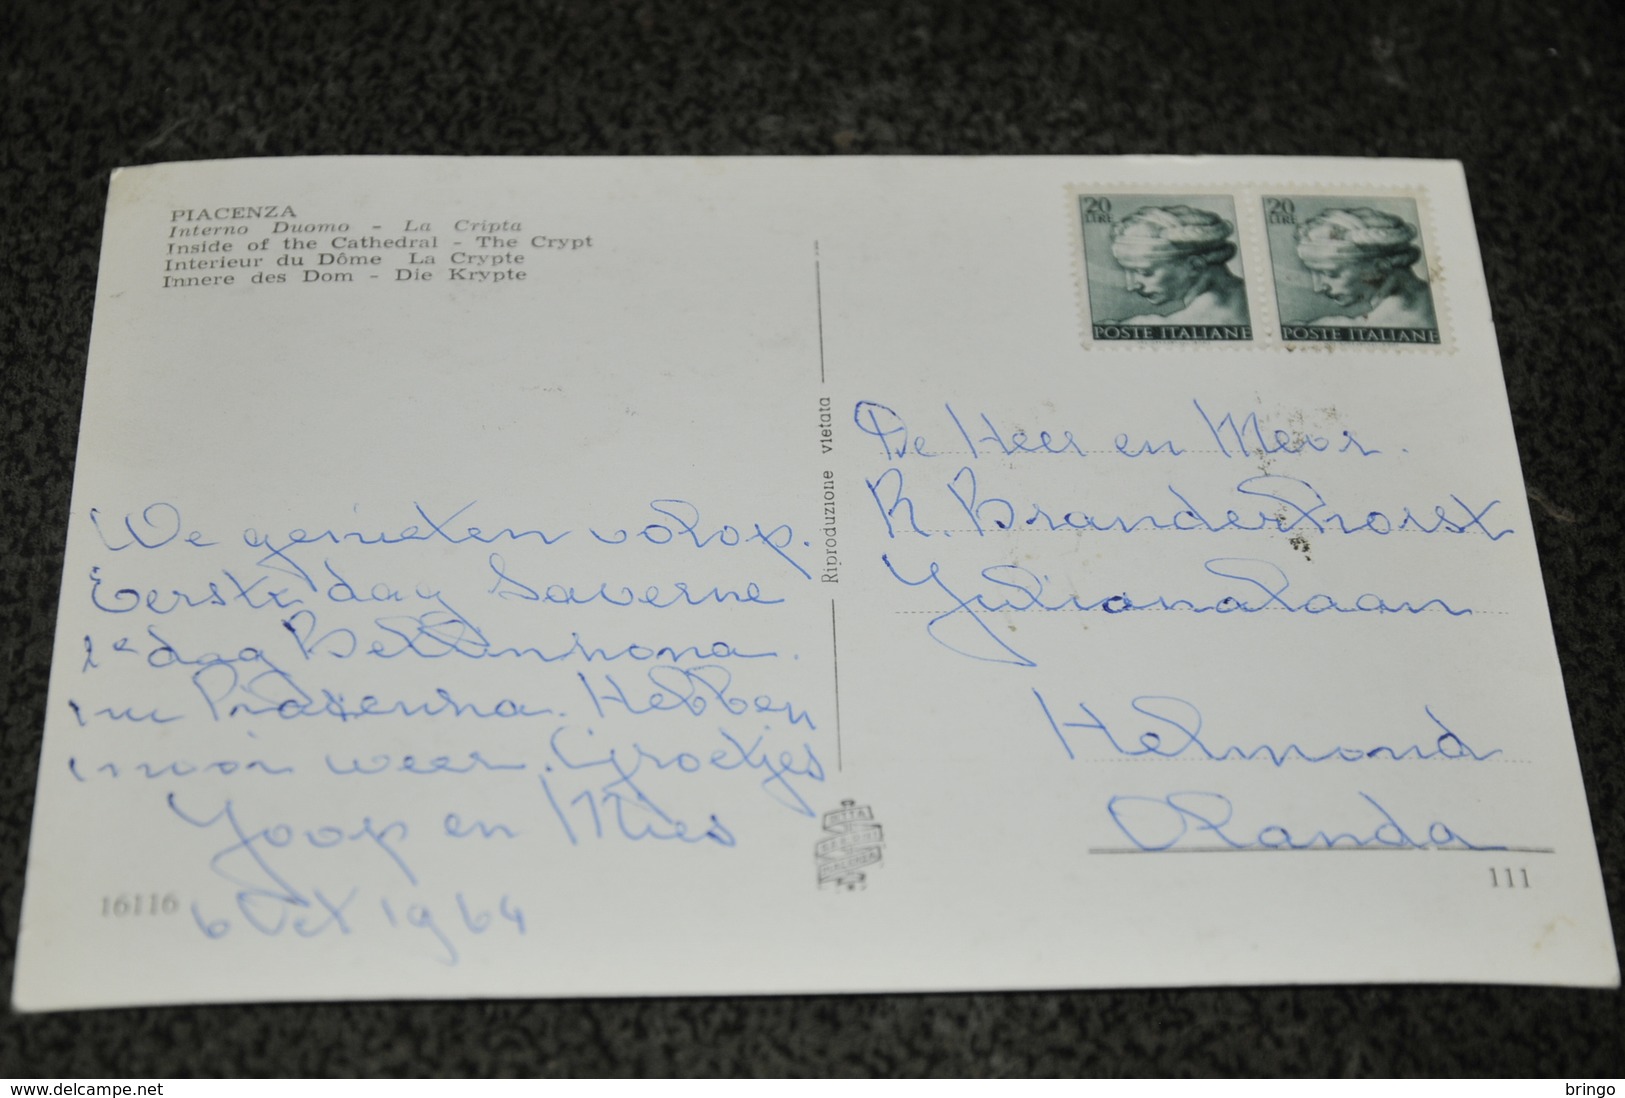 PIACENZA
Interno Duomo - La Cripta
Inside of the Cathedral - The Crypt
Interieur du Dôme La Crypte
Innere des Dom - Die Krypte
20 LIRE
POSTE ITALIANE
20 LIRE
POSTE ITALIANE
Riproduzione vietata
We genieten volop.
Eerste dag Saverne
2e dag Bellinnona.
nu Piazenna. Hebben
mooi weer. Groetjes
Joop en Mies
16116 6 Oct 1964
De Heer en Mevr.
R. Branderhorst
Julianalaan
Helmond
Olanda
111
www.delcampe.net
bringo